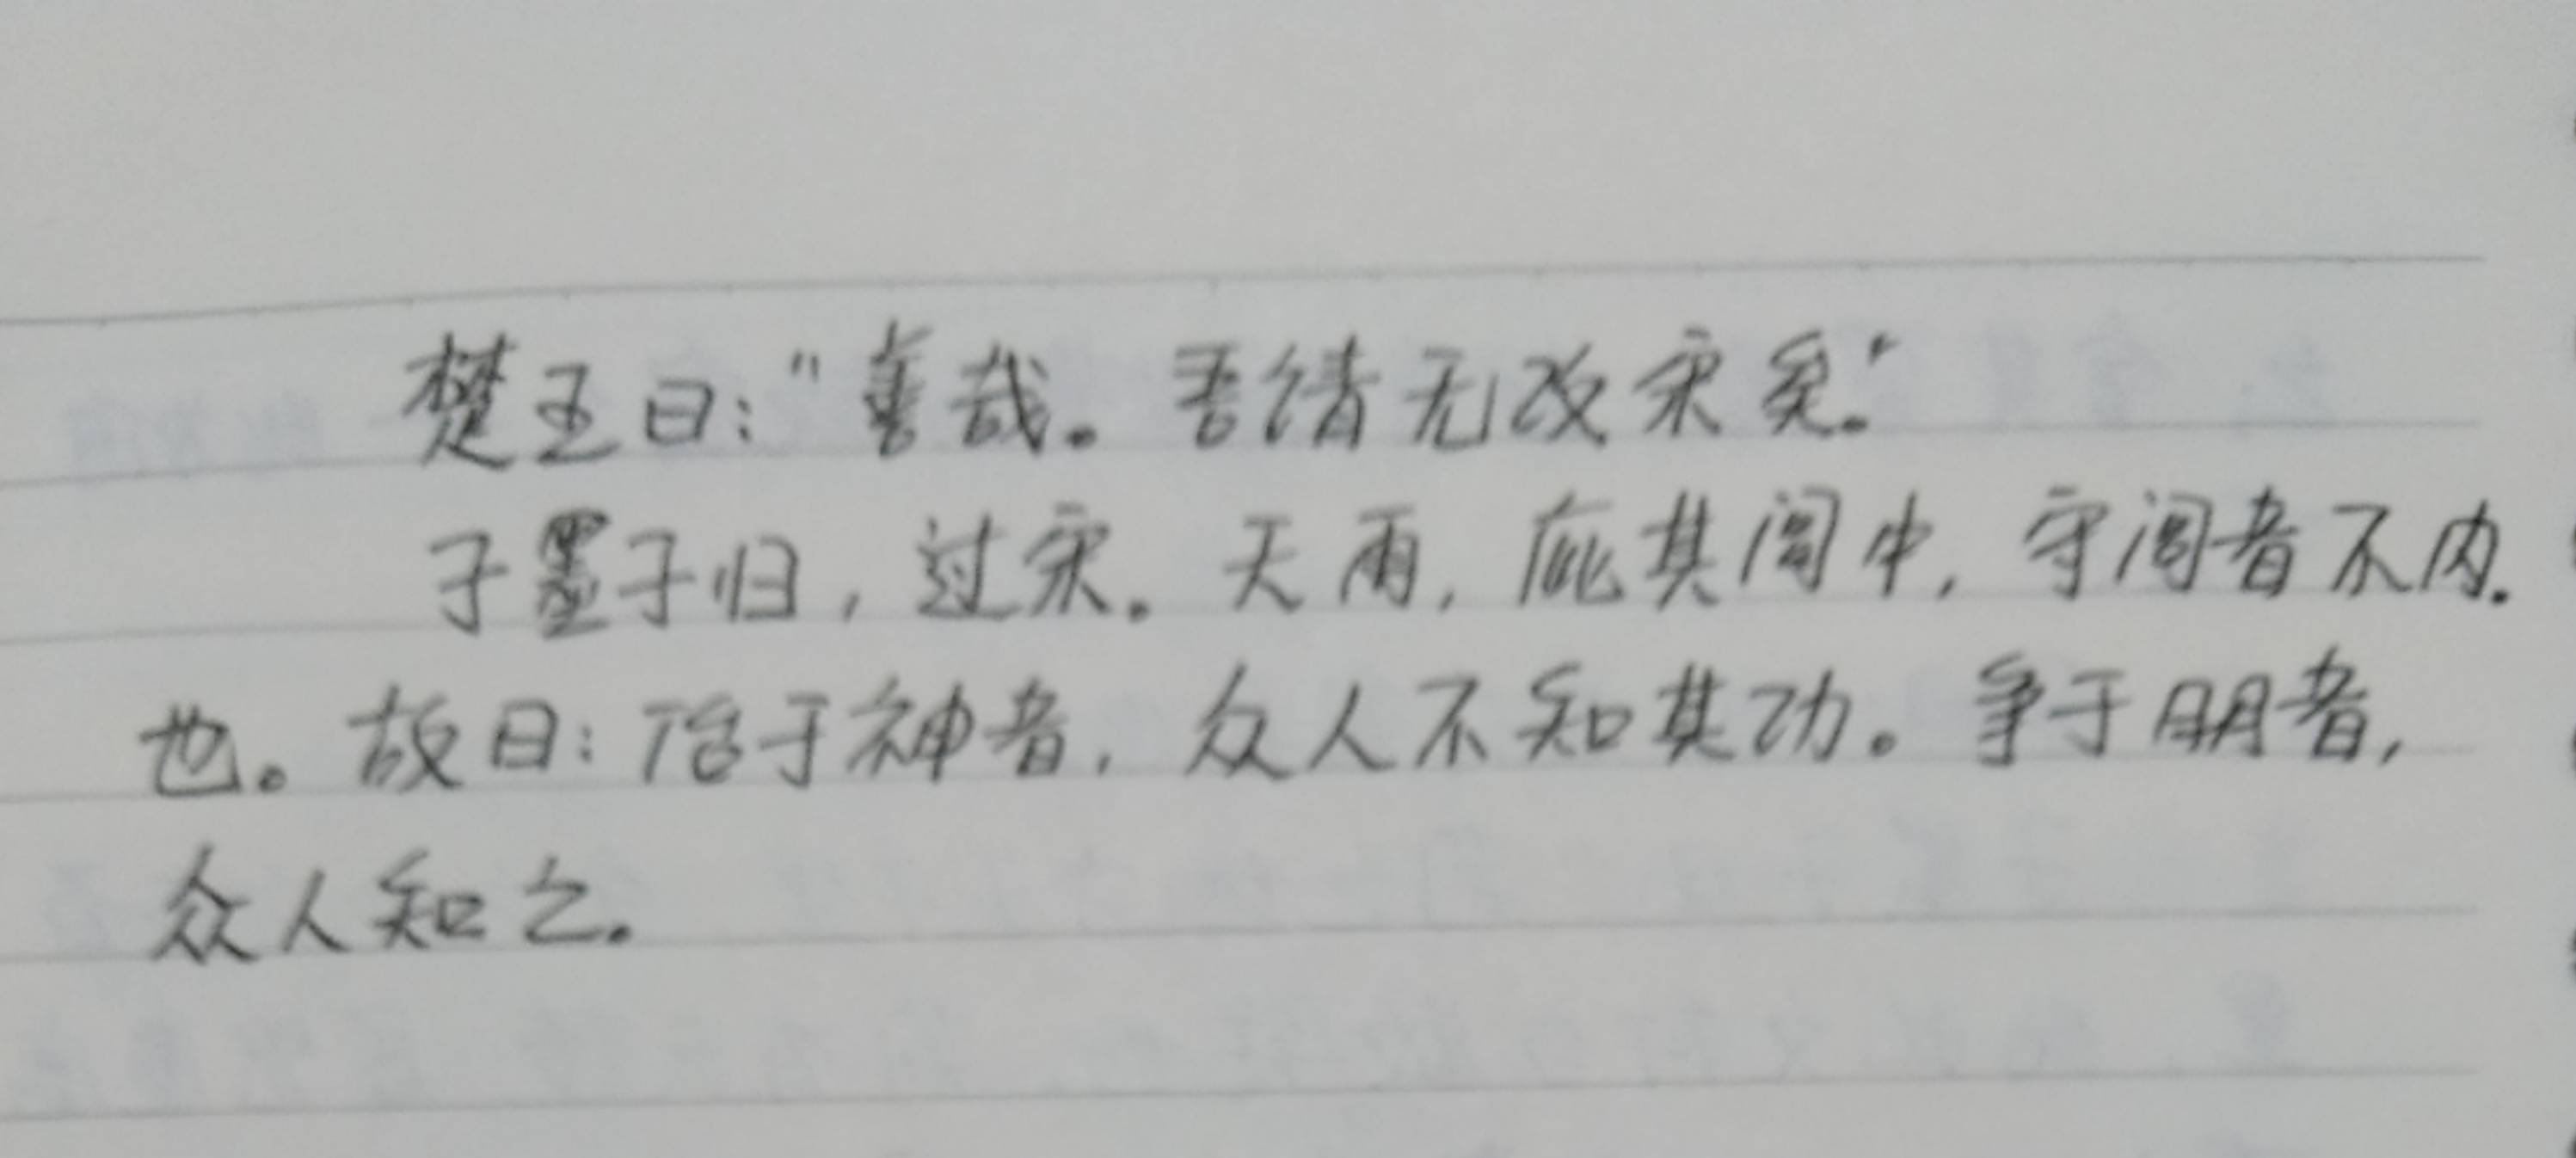 楚王曰："善哉。吾请无攻宋矣."
子墨子归，过宋。天雨，庇其闾中，守闾者不内.
也。故曰：治于神者，众人不知其功。争于明者，
众人知之.